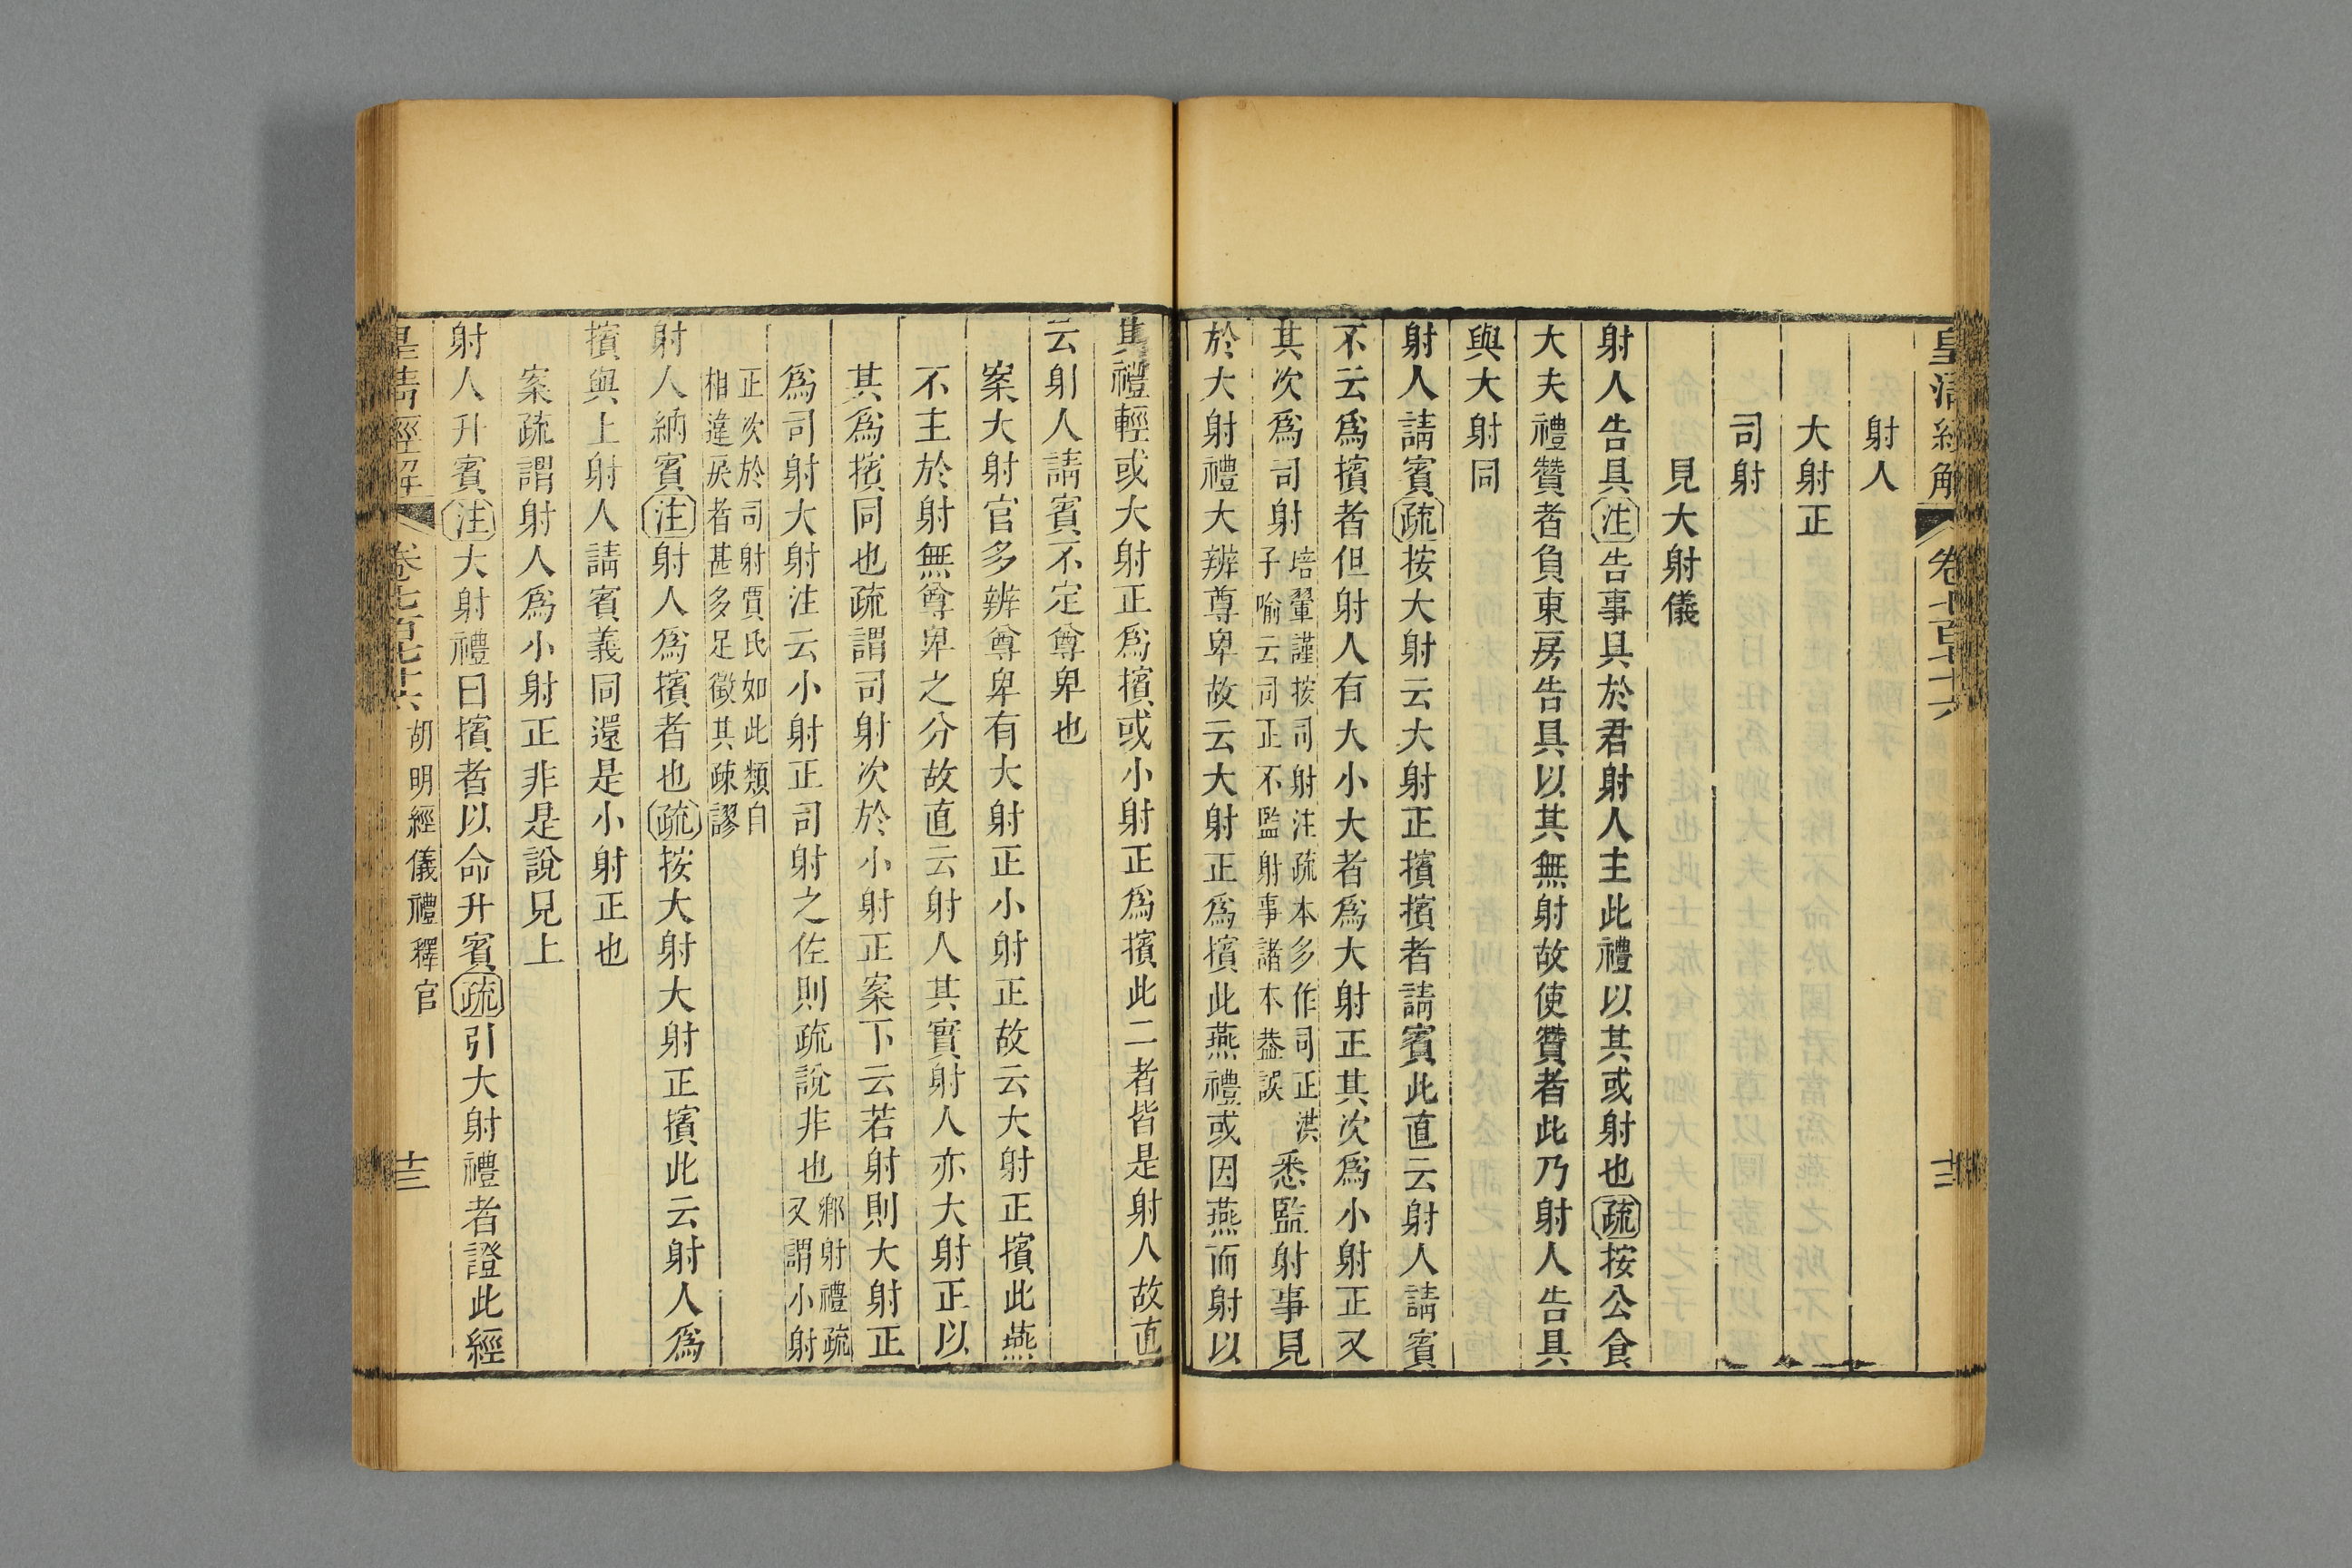 皇清經解　卷七百七十六　十二
射人
大射正
司射
見大射儀
射人告具注告事具於君射人主此禮以其或射也疏按公食
大夫禮贊者負東房告具以其無射故使贊者此乃射人告具
與大射同
射人請賓疏按大射云大射正擯擯者請賓此直云射人請賓
不云爲擯者但射人有大小大者爲大射正其次爲小射正又
其次爲司射培翬謹按司射注疏本多作司正洪子喻云司正不監射事諸本葢誤悉監射事見
於大射禮大辨尊卑故云大射正爲擯此燕禮或因燕而射以
其禮輕或大射正爲擯或小射正爲擯此二者皆是射人故直
云射人請賓不定尊卑也
案大射官多辨尊卑有大射正小射正故云大射正擯此燕
不主於射無尊卑之分故直云射人其實射人亦大射正以
其爲擯同也疏謂司射次於小射正案下云若射則大射正
爲司射大射注云小射正司射之佐則疏說非也鄉射禮疏又謂小射
正次於司射賈氏如此類自相違戾者甚多足徵其疎謬
射人納賓注射人爲擯者也疏按大射大射正擯此云射人爲
擯與上射人請賓義同還是小射正也
案疏謂射人爲小射正非是說見上
射人升賓注大射禮曰擯者以命升賓疏引大射禮者證此經
皇清經解　卷七百七十六　胡明經儀禮釋官　十二